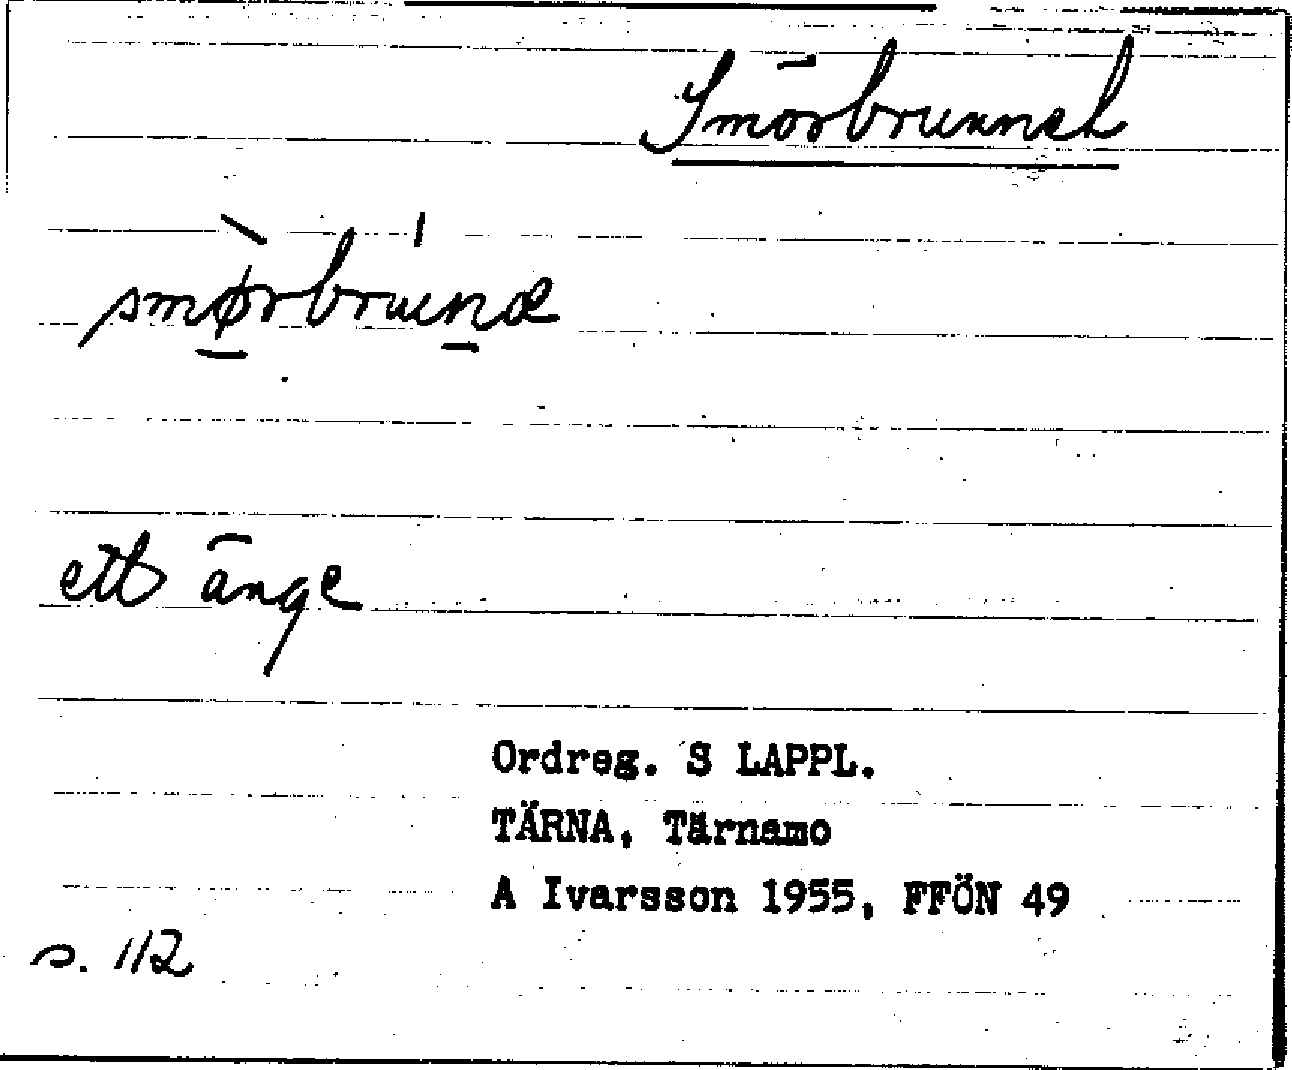 Smörbrunnet
smø̀rbrúnæ
ett änge
Ordreg. S LAPPL.
TÄRNA, Tärnamo
A Ivarsson 1955, FFÖN 49
s. 112